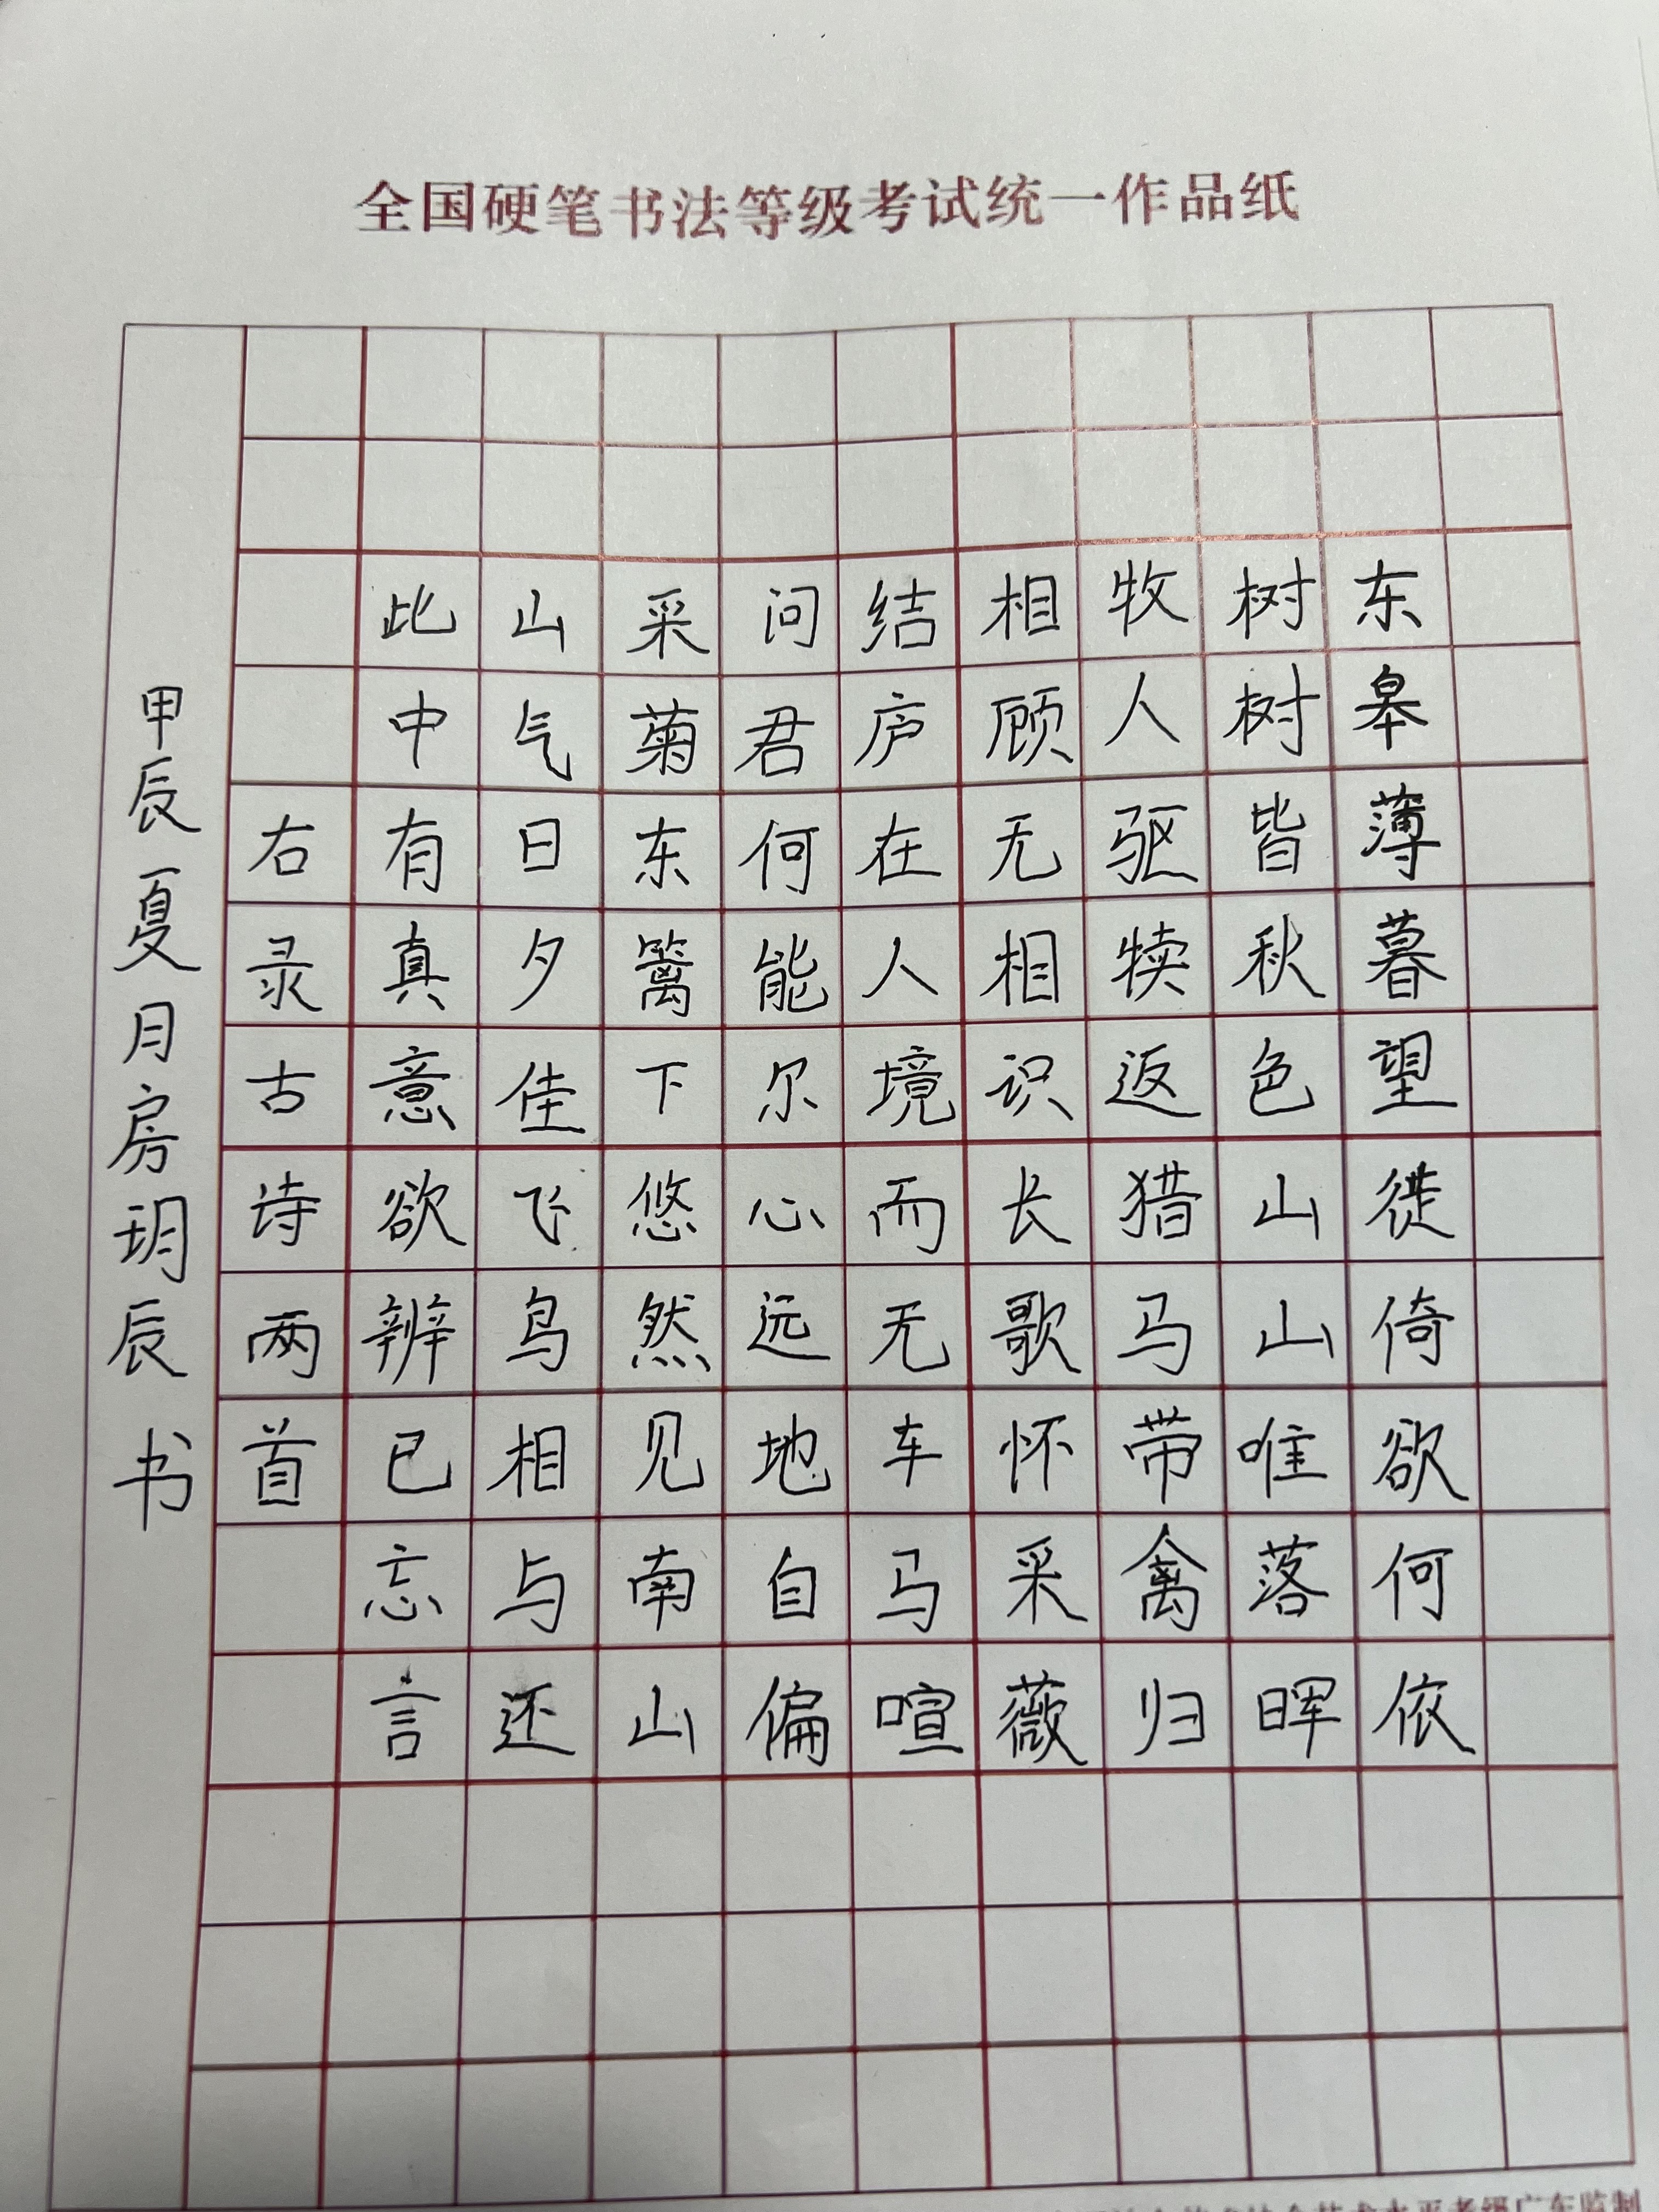 全国硬笔书法等级考试统一作品纸
东皋薄暮望徙倚欲何依
树树皆秋色山山唯落晖
牧人驱犊返猎马带禽归
相顾无相识长歌怀采薇
结庐在人境而无车马喧
问君何能尔心远地自偏
采菊东篱下悠然见南山
山气日夕佳飞鸟相与还
此中有真意欲辨已忘言
右录古诗两首
甲辰夏月房玥辰书